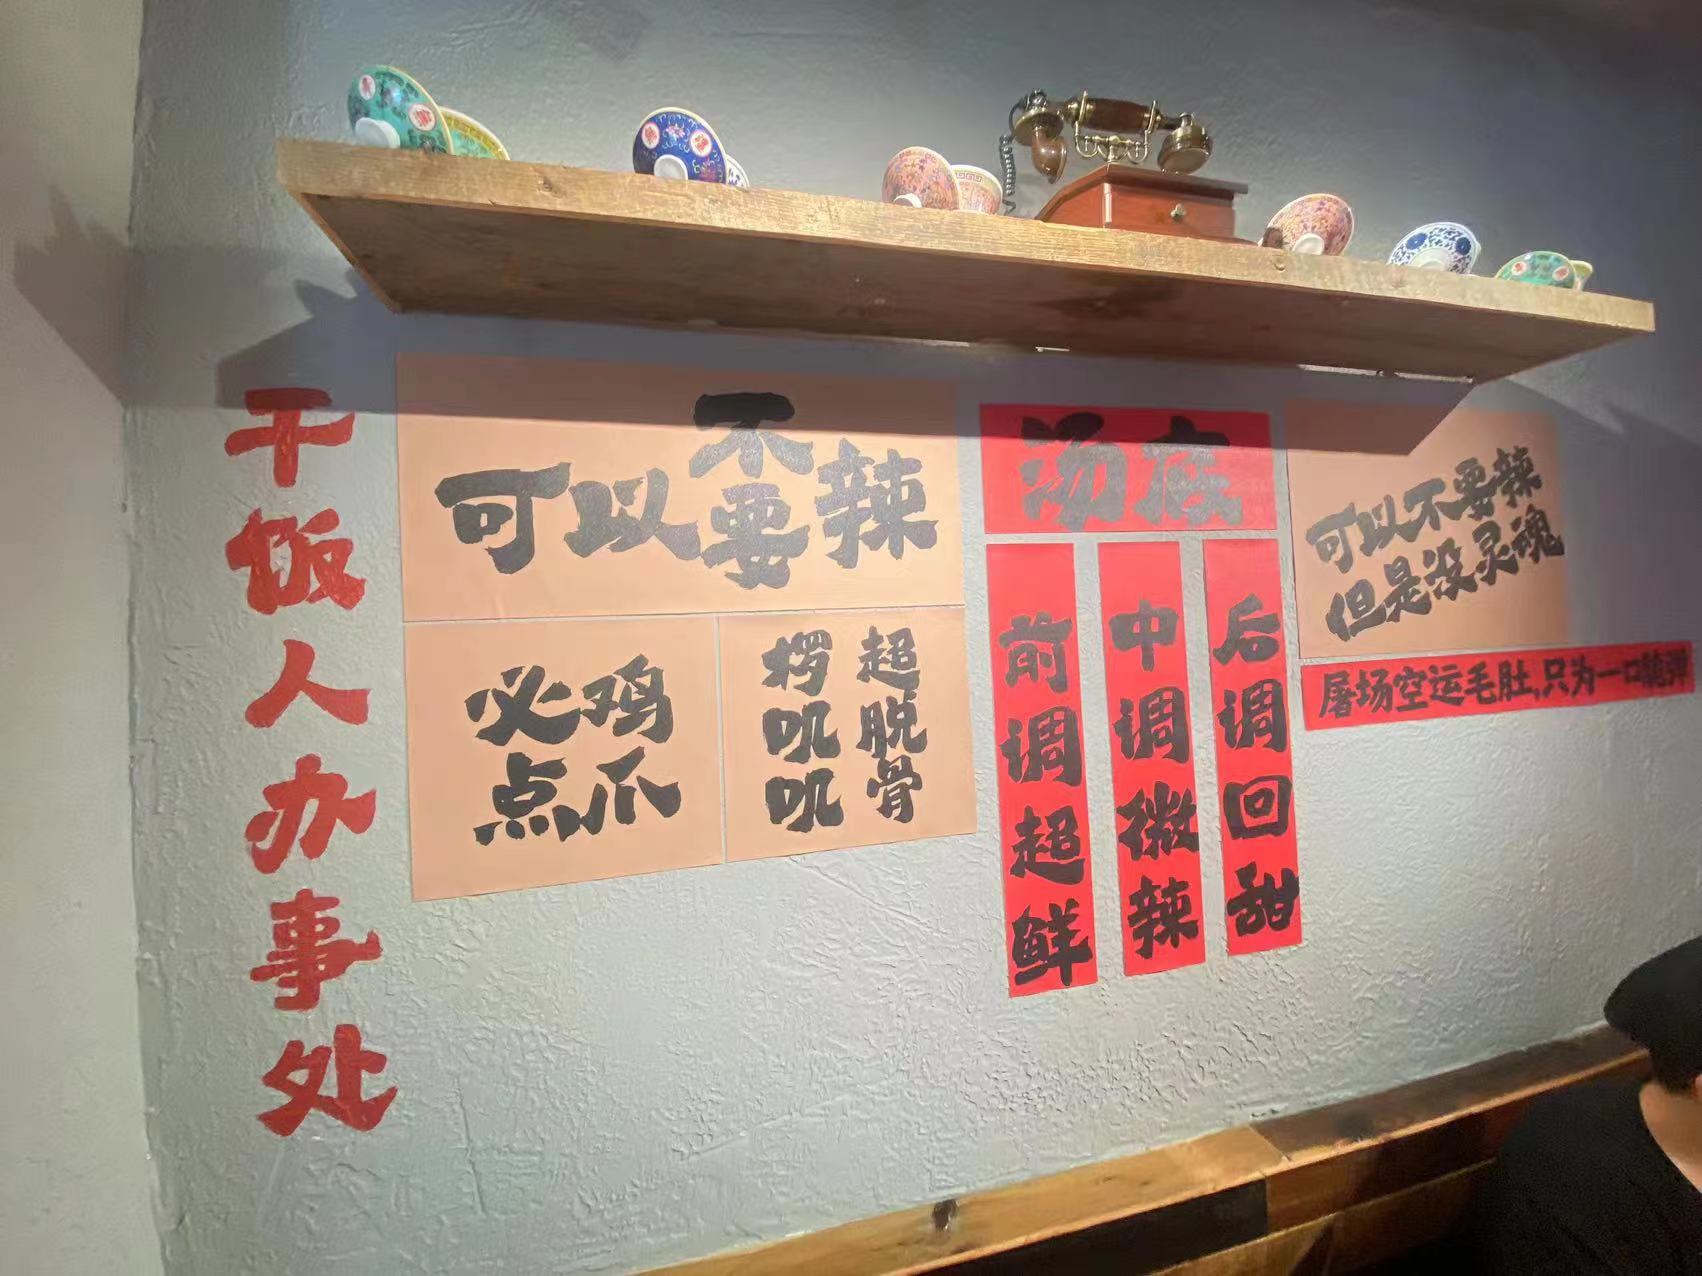 干饭人办事处
可以不要辣
必点
鸡爪
超脱骨
楞叽叽
汤底
前调超鲜
中调微辣
后调回甜
可以不要辣
但是没灵魂
屠场空运毛肚,只为一口脆弹